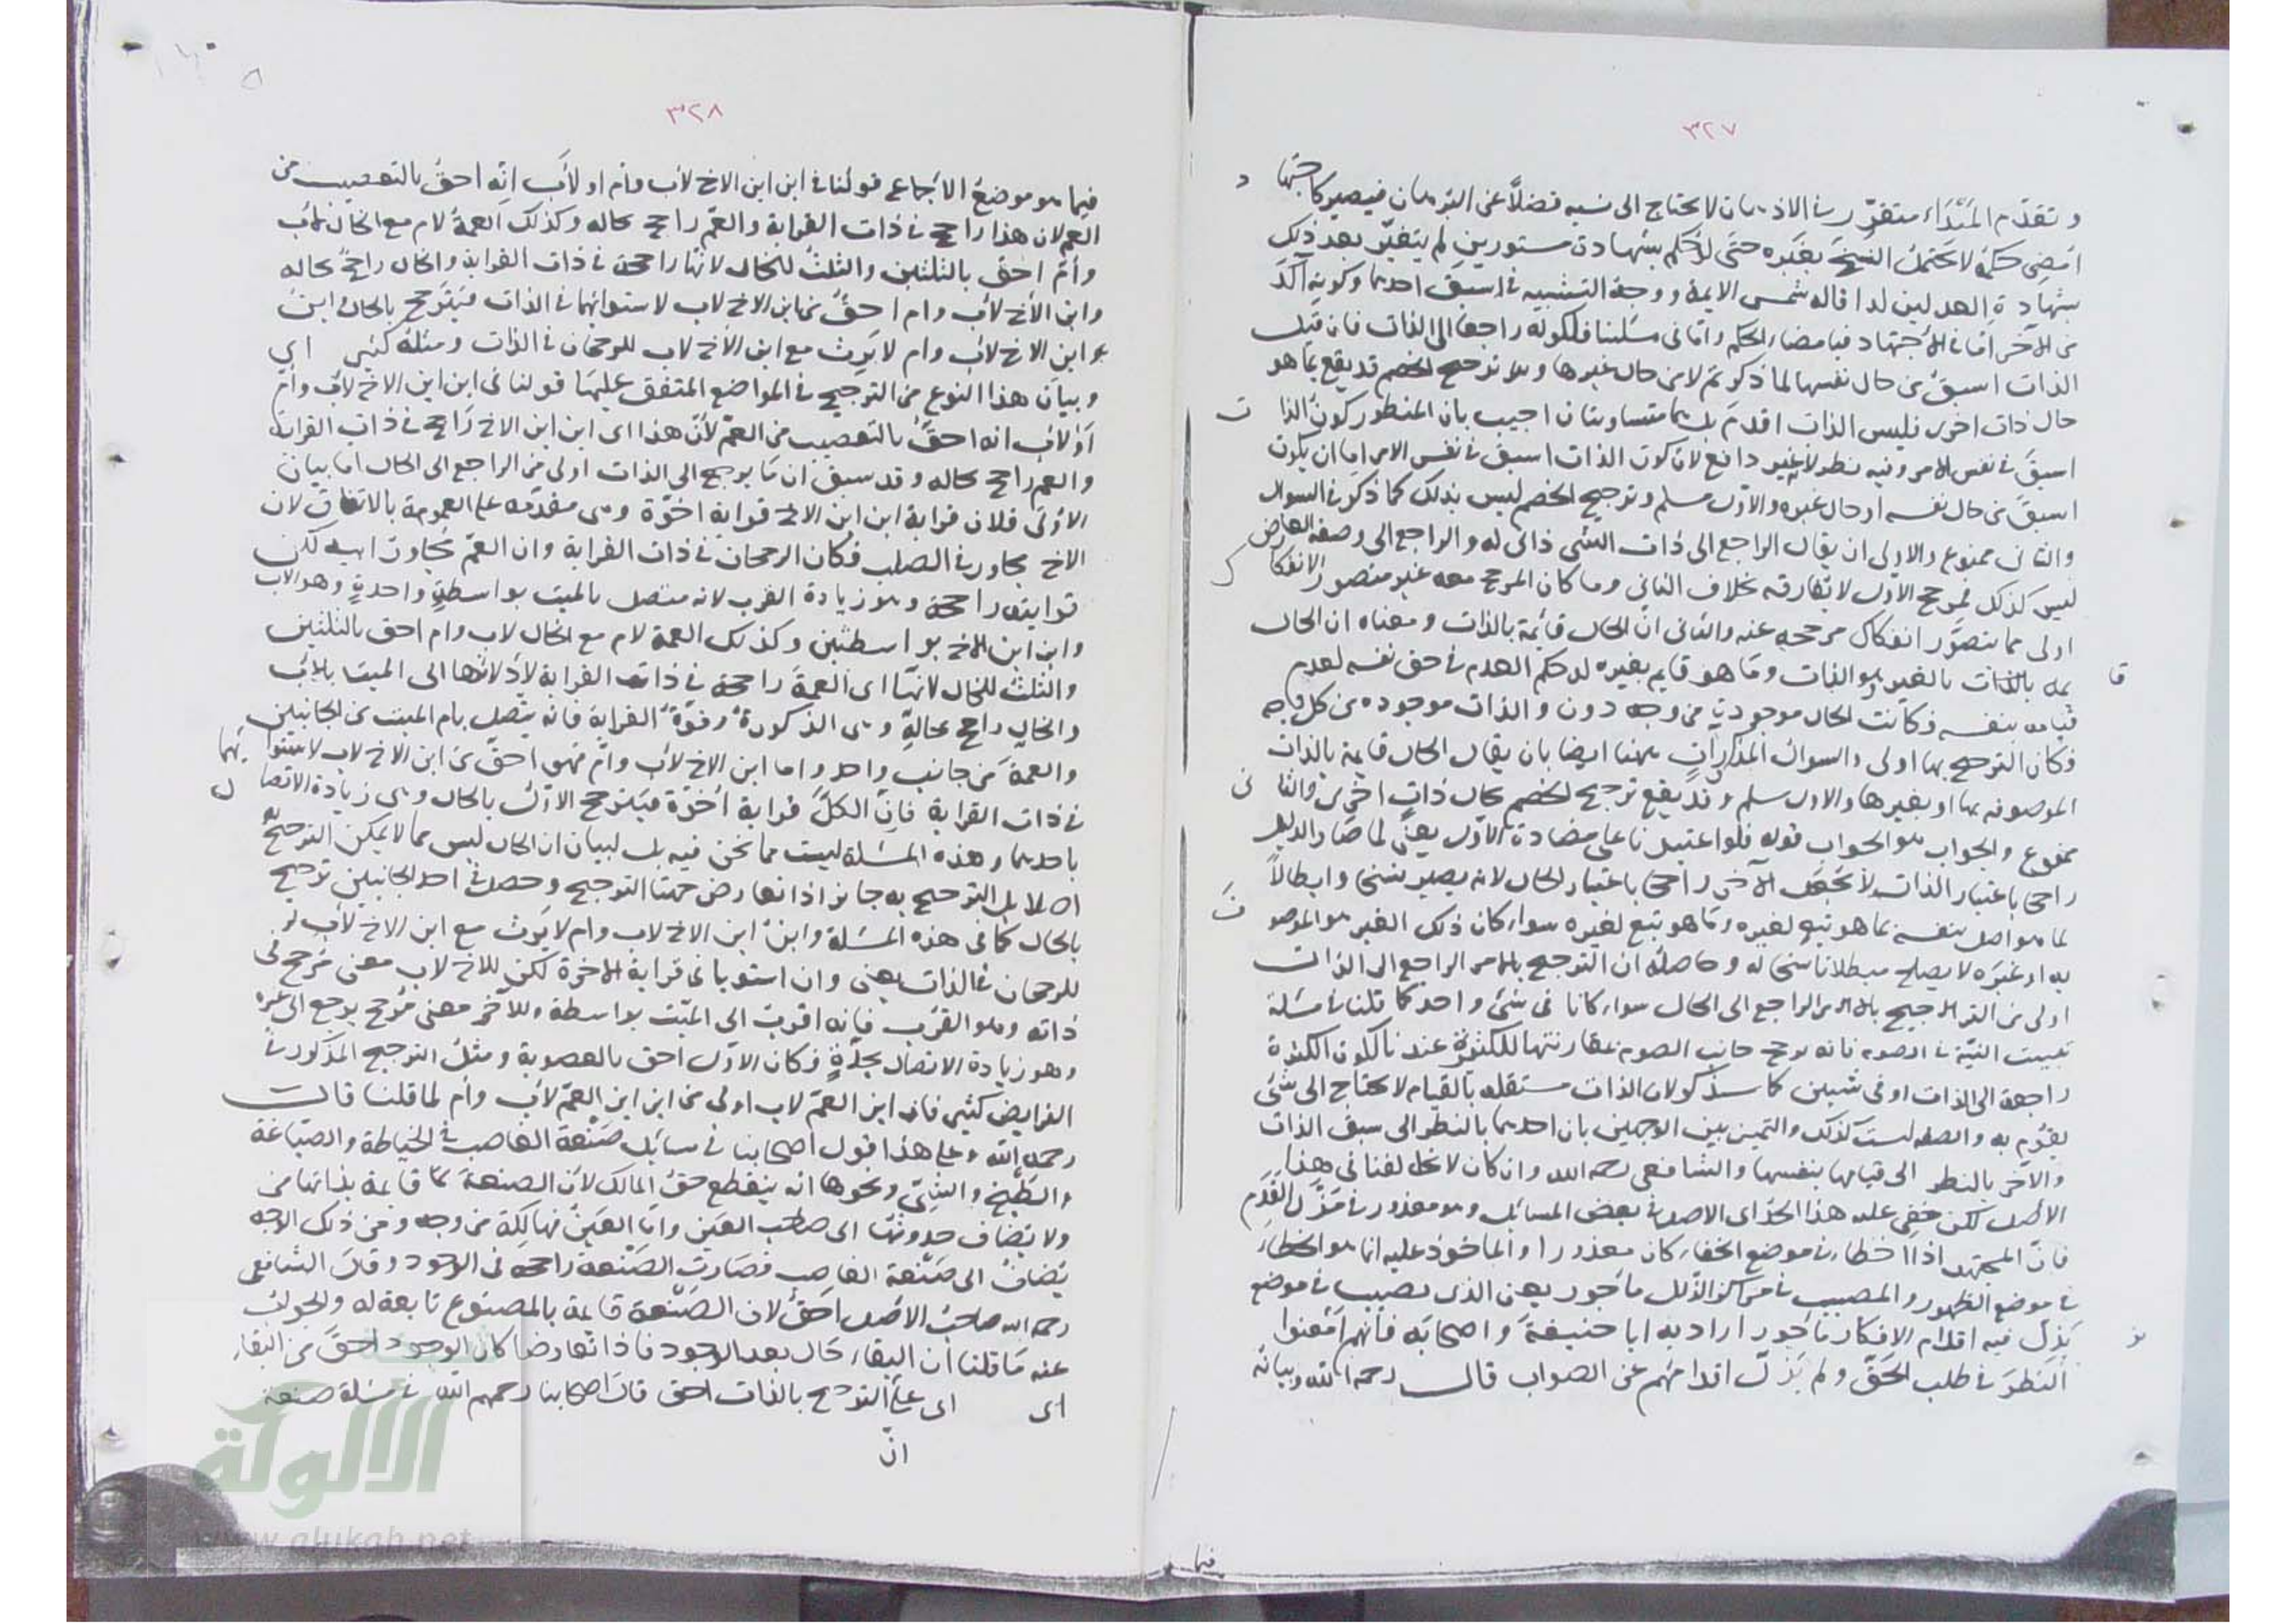 ٣٢٧
و تقدم المبتداء متقرر في الاذهان لا يحتاج الى نسبه فضلا عن البرهان فيصير كاجتهاد
امضي حكمه لا يحتمل النسخ بغيره حتى لو حكم بشهادة مستورين لم يتغير بعد ذلك
بشهادة العدلين لدا قاله شمس الايمة ووجه التشبيه في اسبق احدهما وكونه آكد
من الآخر اما في الاجتهاد فبامضاء الحكم واما في مسئلتنا فلكونه راجعا الى الذات فان قيل
الذات اسبق من حال نفسها لما ذكرتم لا من حال غيرها و ترجيح الخصم قد يقع بما هو
حال ذات اخرى فليس الذات اقدم بل هما متساويتان اجيب بان المنظور كون الذات
اسبق في نفس الامر وفيه نظر لانه غير دافع لان كون الذات اسبق في نفس الامر اما ان يكون
اسبق من حال نفسه او حال غيره والاول مسلم وترجيح الخصم ليس بذلك كما ذكر في السوال
والثاني ممنوع والاولى ان يقال الراجع الى ذات الشي ذاتي له و الراجع الى وصفه العارض
ليس كذلك فمرجح الاول لا يفارقه بخلاف الثاني وما كان المرجح معه غير متصور الانفكاك
اولى مما يتصور انفكاك مرجحه عنه والثاني ان الحال قائمة بالذات و معناه ان الحال
قايمه بالذات بالغير هو الذات وما هو قايم بغيره له حكم العدم في حق نفسه لعدم
قيامه بنفسه فكانت الحال موجودة من وجه دون و الذات موجوده من كل وجه
فكان الترجيح بها اولى والسوال المذكور آت ههنا ايضا بان يقال الحال قايمة بالذات
الموصوفه بها او بغيرها والاول مسلم و قد يقع ترجيح الخصم بحال ذات اخرى والثاني
ممنوع والجواب هو الجواب قوله فلو اعتبرنا على مضادة الاول يعني لما صار الدليل
راجحا باعتبار الذات لا نجعل الآخر راجحا باعتبار الحال لانه يصير نسخا وابطالا
لما هو اصل بنفسه بما هو تبع لغيره وما هو تبع لغيره سواء كان ذلك الغير هو الموصوف
به او غيره لا يصلح مبطلا ناسخا له و حاصله ان الترجيح بالامر الراجع الى الذات
اولى من الترجيح بالامر الراجع الى الحال سواء كانا في شئ واحد كما قلنا في مسئلة
تبييت النية في الصوم فانه يرجح جانب الصوم بمقارنتها للكثرة عندنا لكون الكثرة
راجعة الى الذات او في شيئين كما سنذكر لان الذات مستقله بالقيام لا يحتاج الى شئ
يقوم به و الصفه ليست كذلك والتميز بين الوجهين بان احدهما بالنظر الى سبق الذات
والآخر بالنظر الى قيامها بنفسها و الشافعي رحمه الله وان كان لا يخالفنا في هذا
الاصل لكن خفي عليه هذا الحد اى الاصل في بعض المسائل وهو معذور في مزل القدم
فان المجتهد اذا اخطاء في موضع الخفاء كان معذورا و الماخوذ عليه انما هو الخطاء
في موضع الظهور والمصيب في مراكز الزلل ماجور يعني الذى يصيب في موضع
يزل فيه اقدام الافكار ماجور اراد به ابا حنيفة و اصحابه فانهم امعنوا
النظر في طلب الحق و لم يزل اقدامهم عن الصواب قال رحمه الله وبيانه
فيما
٣٢٨
فيما هو موضع الاجماع قولنا في ابن ابن الاخ لاب وام او لاب انه احق بالتعصيب من
العم لان هذا راجح في ذات القرابة والعم راجح بحاله وكذلك العمة لام مع الخال لاب
وام احق بالثلثين والثلث للخال لانها راجحة في ذات القرابة والخال راجح بحاله
وابن الاخ لاب وام احق من ابن الاخ لاب لاستوائهما في الذات فيترجح بالحال وابن
ابن الاخ لاب وام لا يرث مع ابن الاخ لاب للرجحان في الذات ومثله كثير اى
وبيان هذا النوع من الترجيح في المواضع المتفق عليها قولنا في ابن ابن الاخ لاب وام
او لاب انه احق بالتعصيب من العم لان هذا اى ابن ابن الاخ راجح في ذات القرابة
والعم راجح بحاله وقد سبق ان ما يرجح الى الذات اولى من الراجع الى الحال اما بيان
الاولى فلان قرابة ابن ابن الاخ قرابة اخوة وهي مقدمه على العمومة بالاتفاق لان
الاخ مجاور في الصلب فكان الرجحان في ذات القرابة وان العم مجاور ابيه لكن
قرابته راجحة وهو زيادة القرب لانه متصل بالميت بواسطة واحدة وهو الاب
وابن ابن الاخ بواسطتين وكذلك العمة لام مع الخال لاب وام احق بالثلثين
والثلث للخال لانها اى العمة راجحة في ذات القرابة لادلائها الى الميت بالاب
والخال راجح بحاله وهى الذكورة وقوة القرابة فانه يتصل بام الميت من الجانبين
والعمة من جانب واحد واما ابن الاخ لاب وام فهو احق من ابن الاخ لاب لاستوائهما
في ذات القرابة فان الكل قرابة اخوة فيترجح الاول بالحال وهي زيادة الاتصال
باحدهما وهذه المسئلة ليست مما نحن فيه بل لبيان ان الحال ليس مما لا يمكن الترجيح به
اصلا بل الترجيح به جايز اذا تعارض جهتا الترجيح وحصل في احد الجانبين ترجيح
بالحال كما في هذه المسئلة وابن ابن الاخ لاب وام لا يرث مع ابن الاخ لاب
للرجحان في الذات يعني وان استويا في قرابة الاخوة لكن للاخ لاب معنى مرجح في
ذاته وهو القرب فانه اقرب الى الميت بواسطة وللآخر معنى مرجح يرجع الى غيره
وهو زيادة الاتصال بجدة فكان الاول احق بالعصوبة ومثل الترجيح المذكور في
الفرايض كثير فان ابن العم لاب اولى من ابن ابن العم لاب وام لما قلنا قال
رحمه الله وعلى هذا قول اصحابنا في مسائل صنعة الغاصب في الخياطة والصباغة
والطبخ والشي ونحوها انه ينقطع حق المالك لان الصنعة قايمة بذاتها من
ولا يضاف حدوثها الى صاحب العين واما العين فهالكة من وجه ومن ذلك الوجه
يضاف الى صنعة الغاصب فصارت الصنعة راجحة في الوجود وقال الشافعي
رحمه الله صاحب الاصل احق لان الصنعة قايمة بالمصنوع تابعة له والجواب
عنه ما قلنا ان البقاء حال بعد الوجود فاذا تعارضا كان الوجود احق من البقاء
اى اى على الترجيح بالذات احق قال اصحابنا رحمهم الله في مسئلة صنعة
ان
الألوكة
www.alukah.net